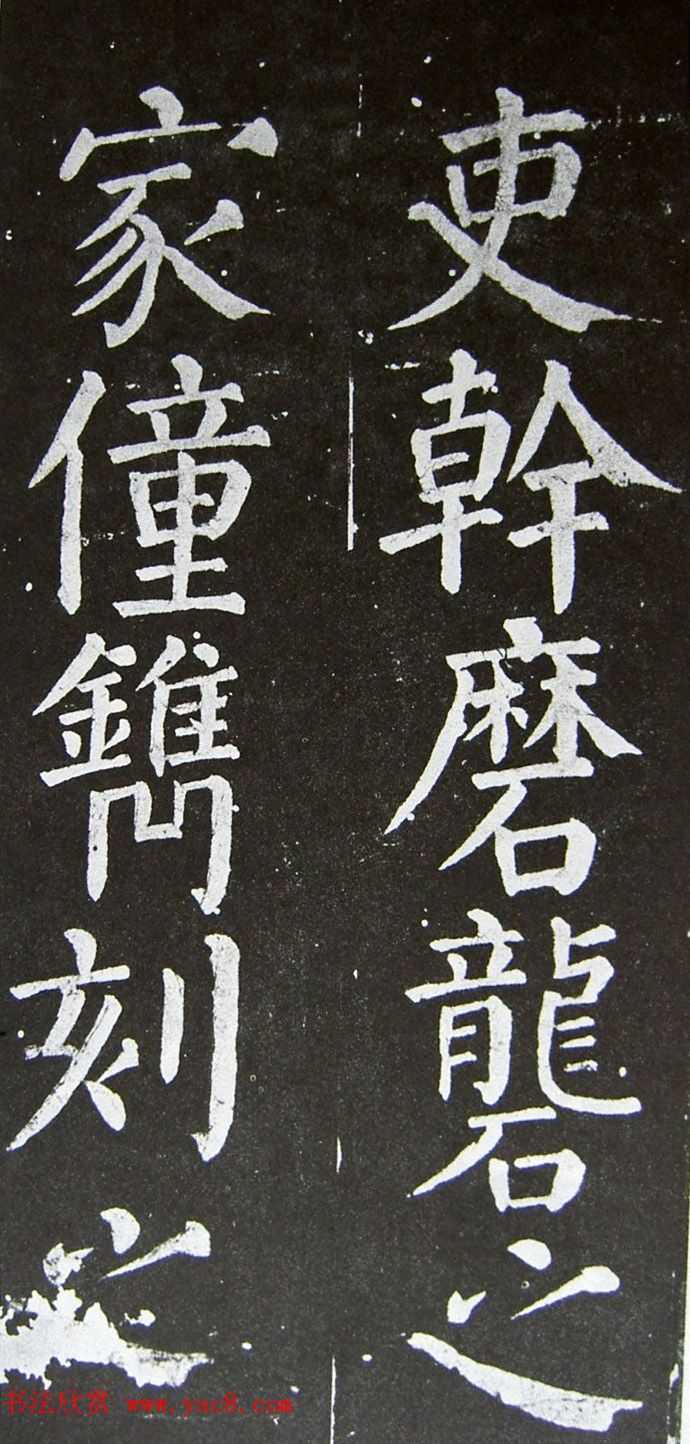 吏幹磨礱之
家僮鐫刻之
书法欣赏 www.yac8.com